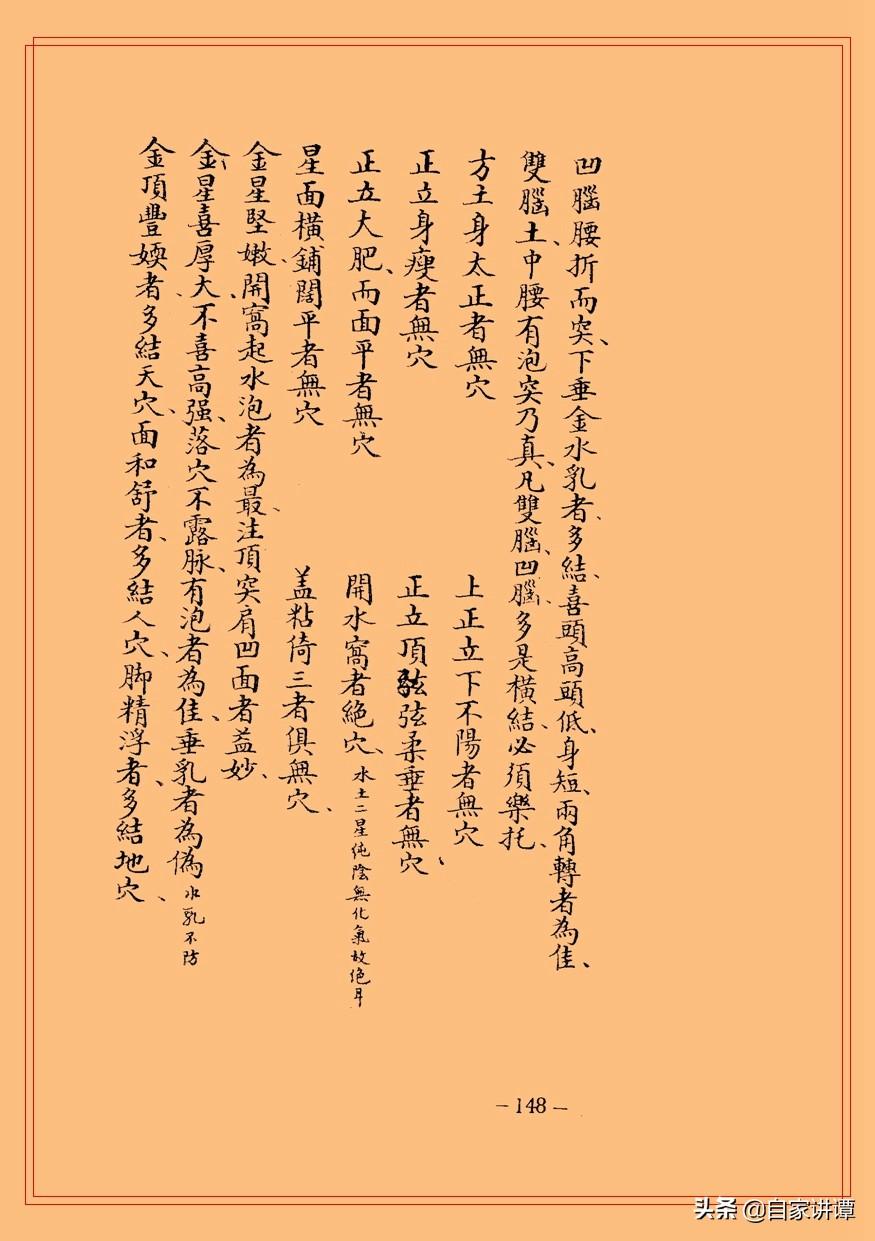 凹腦腰折而突、下垂金水乳者、多結、喜頭高頭低、身短、兩角轉者為佳、
雙腦土、中腰有泡突乃真、凡雙腦、凹腦、多是橫結、必須樂托、
方土身太正者無穴　上正立下不陽者無穴
正立身瘦者無穴　正立頂弦弦柔垂者無穴、
正立大肥、而面平者無穴　開水窩者絕穴、水土二星純陰無化氣故絕耳
星面橫鋪闊平者無穴　盖粘倚三者俱無穴、
金星堅嫩、開窩起水泡者為最、注頂突肩凹面者益妙、
金星喜厚大、不喜高强、落穴不露脉、有泡者為佳、垂乳者為偽水乳不防
金頂豐媆者、多結天穴、面和舒者、多結人穴、脚精浮者、多結地穴、
－148－
头条 @自家讲谭